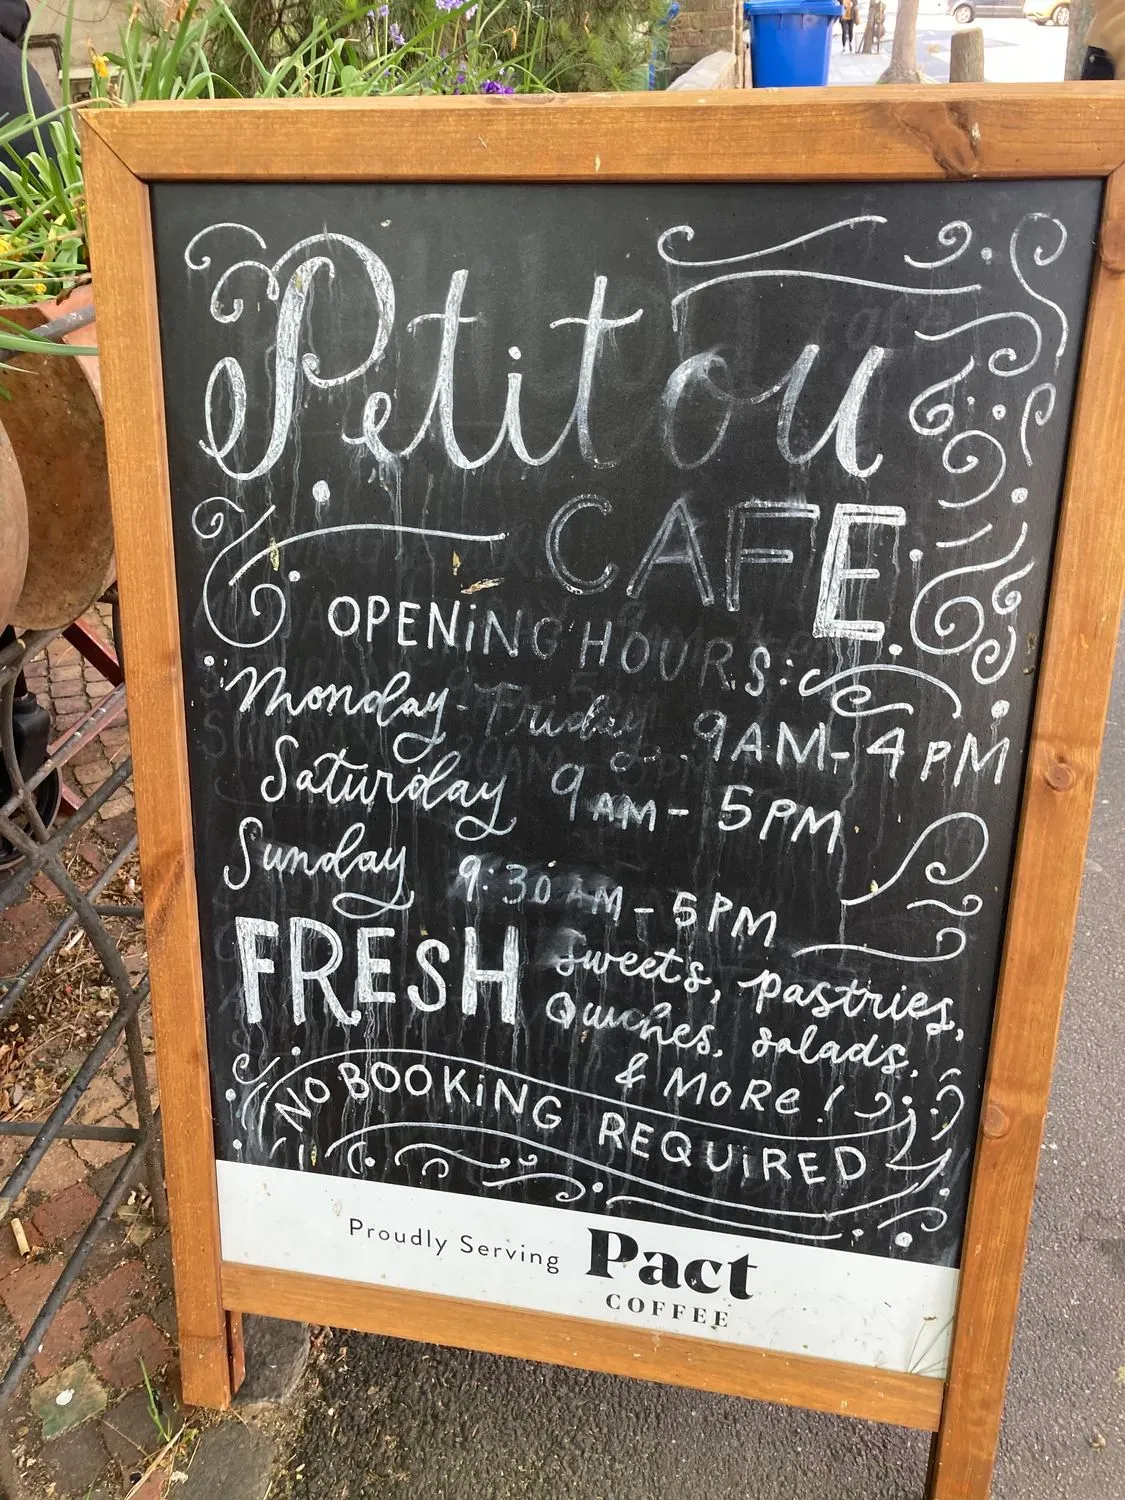 Petitou
CAFE
OPENING HOURS:
Monday - Friday 9AM - 4PM
Saturday 9AM - 5PM
Sunday 9:30AM - 5PM
FRESH sweets, pastries,
Quiches, salads,
& MORe!
NO BOOKiNG REQUiRED
Proudly Serving Pact
COFFEE